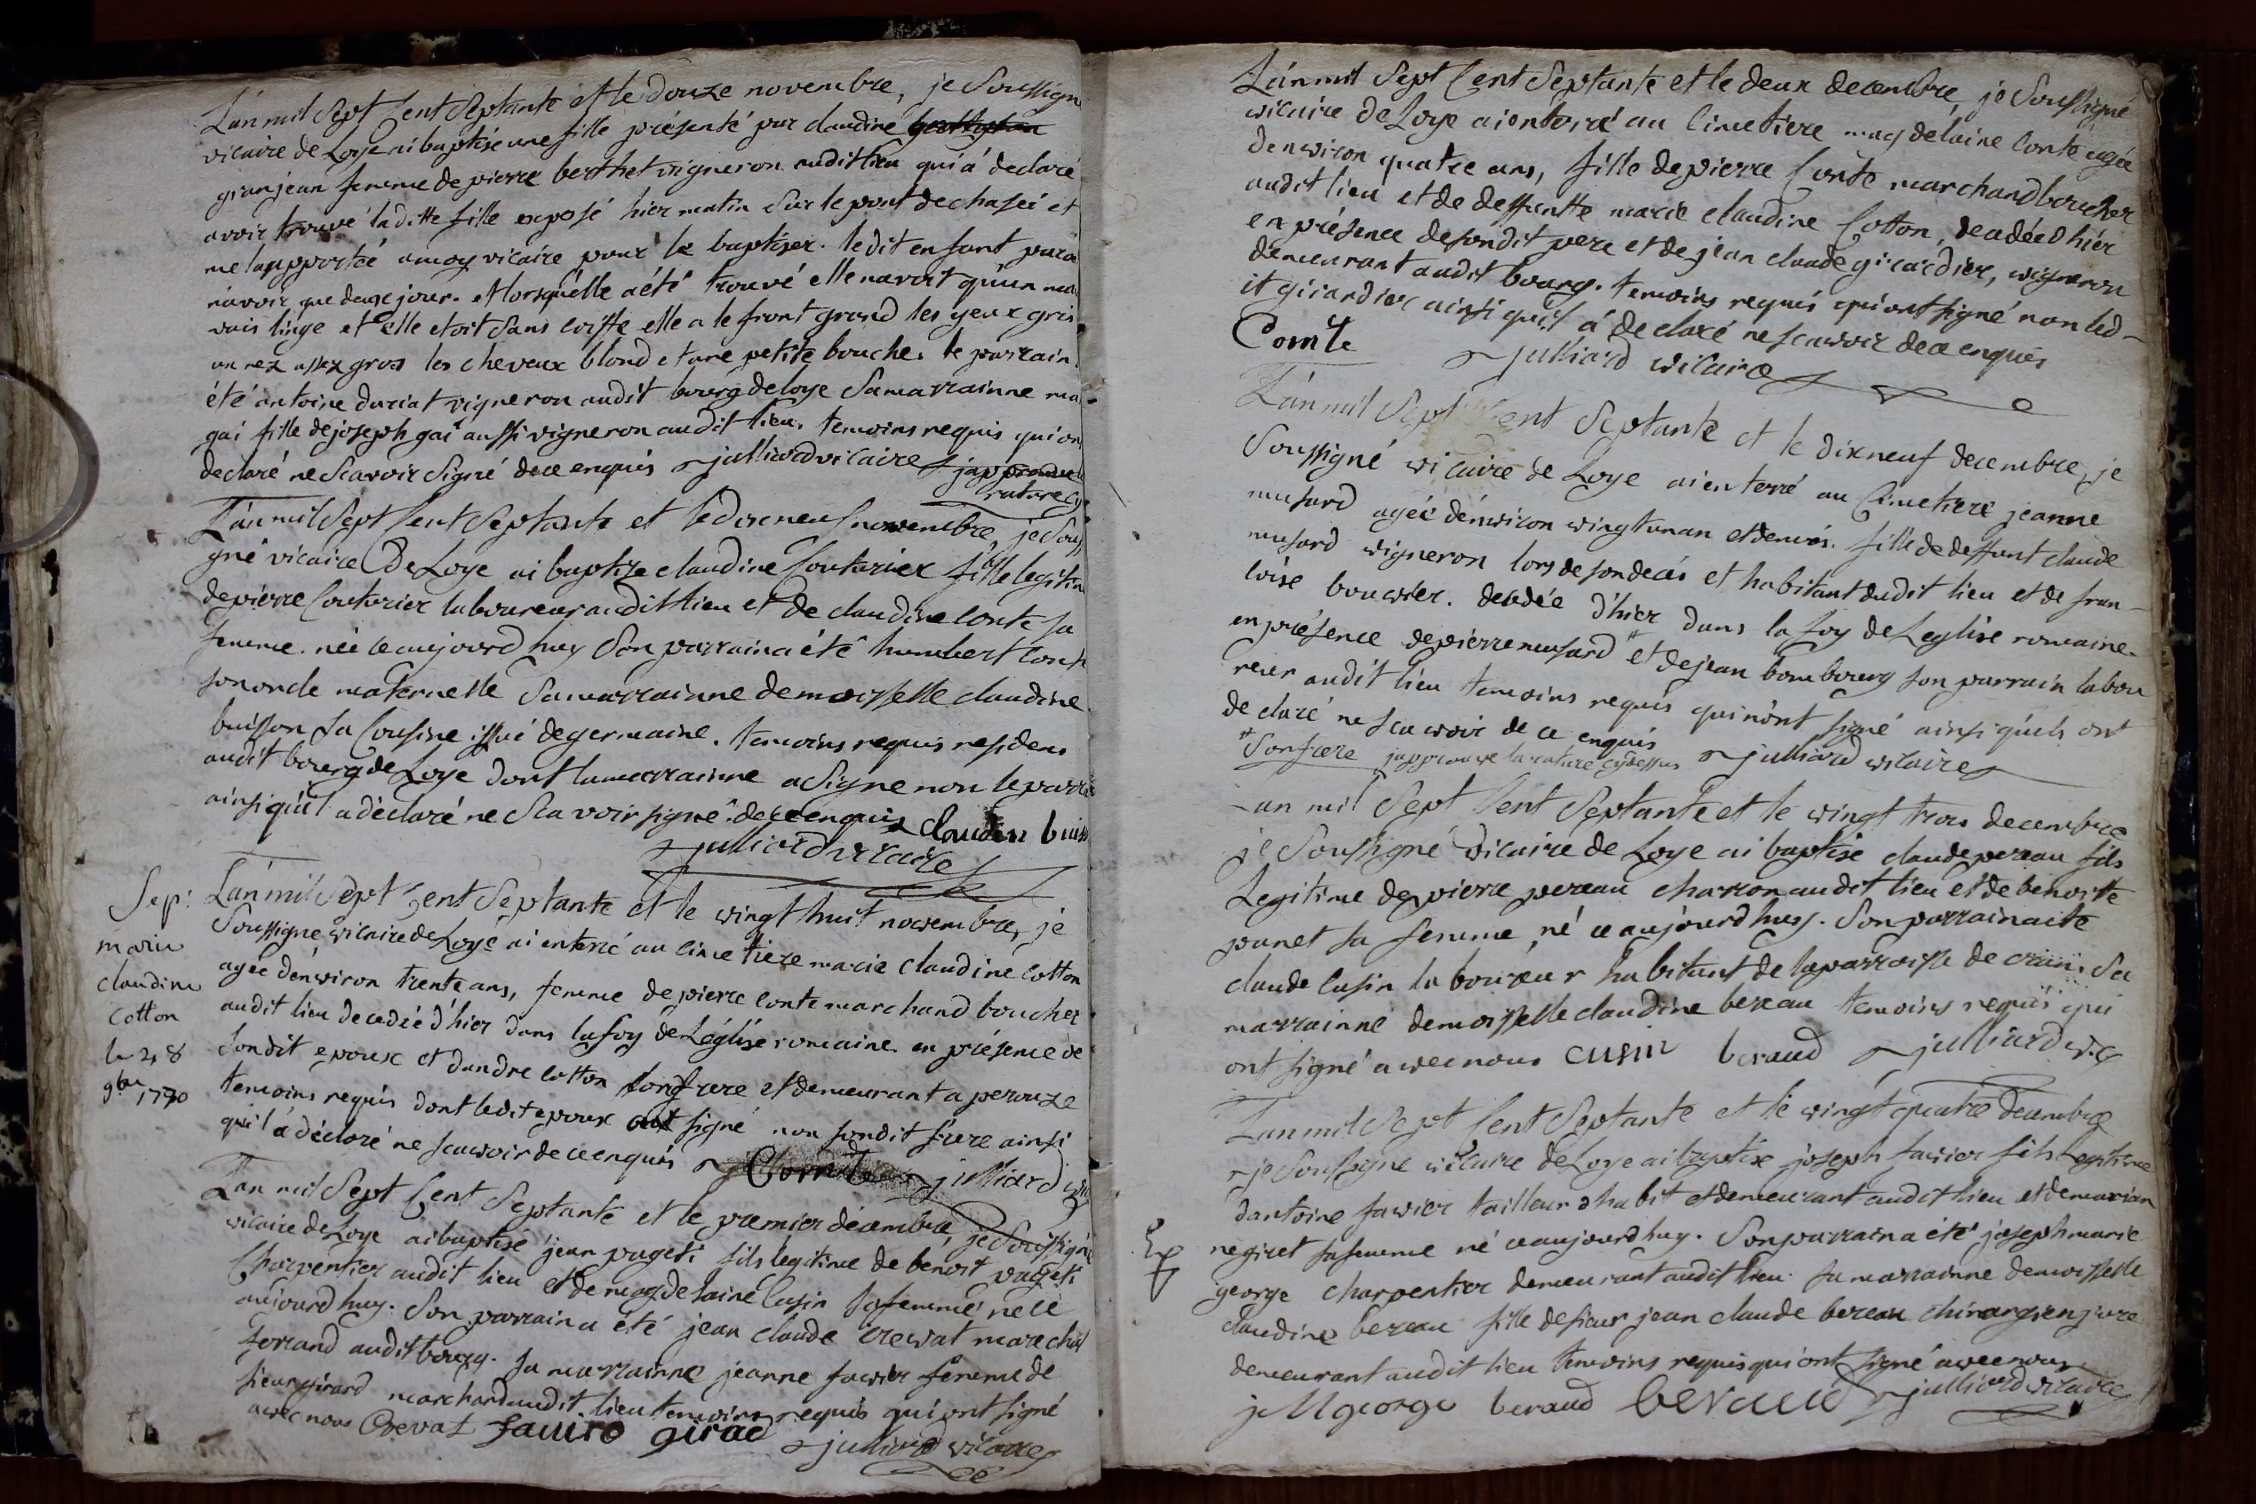 L'an mil Sept Cent Septante et le Douze novembre, je Soussign
vicaire de Loye ai baptisé une fille présenté par claudine
granjean femme de pierre berthet vigneron audit lieu qui a declaré
avoir trouvé laditte fille exposé hier matin Sur le pont de chasei et
me lapportée a moy vicaire pour la baptiser. ledit enfant paroi
n'avoir que deux jour. et lorsqu'elle a été trouvé elle n'avoit qu'un mau
vais linge et elle etoit Sans coiffe elle a le front grand les yeux gris
un nez assez gros les cheveux blond et une petite bouche. le parrain
été antoine duriat vigneron audit bourg de loye Sa marrainne ma
gai fille de joseph gai aussi vigneron audit lieu. temoins requis qui on
declaré ne Scavoir Signé de ce enquis julliard vicaire japprouve
rature cy
L'an mil Sept Cent Septante et le dix neuf novembre, je Souss
gné vicaire De Loye ai baptize claudine Couturier fille legitim
de pierre Couturier laboureur audit lieu et de claudine conte sa
femme. née ce aujourd huy Son parrain a été humbert Cont
son oncle maternelle Sa marrainne demoisselle claudine
buisson sa Cousine issue de germaine. temoins requis residens
audit bourg de Loye dont la marrainne a Signe non le parra
ainsi qu'il a déclaré ne Sca voir signé. de ce enquis claudin buiss
julliard vicaire
Sep:
marie
claudine
cotton
le 28
9bre 1770
L'an mil Sept Cent Septante et le vingt huit novembre, je
Soussigné vicaire de Loye ai enterré au cimetiere marie claudine cotton
agée d'environ trente ans, femme de pierre conte marchand boucher
audit lieu decedée d'hier dans la foy de Léglise romaine. en présence de
sondit epoux et dandre cotton son frere et demeurant a perouze
temoins requis dont ledit epoux signé non sondit frere ainsi
qu'il a déclaré ne scavoir de ce enquis Comte julliard vic
L'an mil Sept Cent Septante et le premier décembre, je Soussigné
vicaire de Loye ai baptisé jean pageti fils légitime de benoit pageti
Charpentier audit lieu et de magdelaine Cusin sa femme né ce
aujourd huy. Son parrain a été jean claude crevat marechal
ferrand audit bourg. sa marrainne jeanne favier femme de
sieur girard marchand audit lieu temoins requis qui ont signé
avec nous Crevat favire girad julliard vicaire
L'an mil Sept Cent Septante et le deux decembre, je Soussigné
vicaire de Loye ai enterré au Cimetiere magdelaine Conte agée
denviron quatre ans, fille de pierre Conte marchand boucher
audit lieu et de deffuntte marie claudine Cotton, decedée d'hier
en présence de sondit pere et de jean claude girardier, vigneron
demeurant audit bourg. temoins requis qui ont signé non led-
it girardier ainsi qu'il a declaré ne scavoir de ce enquis
Comte julliard vicaire
L'an mil Sept Cent Septante et le dix neuf decembre, je
Soussigné vicaire de Loye ai enterré au Cimetiere jeanne
musard agée d'environ vingt un an et demis. fille de deffunt claude
musard vigneron lors de son decés et habitant dudit lieu et de fran-
coise bouvier. decedée d'hier dans la foy de Leglise romaine.
en présence de pierre musard # et de jean bombourg son parrain labou
reur audit lieu temoins requis qui n'ont signé ainsi qu'ils ont
declaré ne scavoir de ce enquis
# Son frere japprouve la rature cy dessus julliard vicaire
L'an mil Sept Cent Septante et le vingt trois decembre
je Soussigné vicaire de Loye ai baptisé claude pereau fils
Legitime de pierre pereau charron audit lieu et de benoite
punet sa femme, né ce aujourd huy. Son parrain a été
claude cusin laboureur habitant de la parroisse de crans. Sa
marrainne demoisselle claudine bereau temoins requis qui
ont signé avec nous cusin beraud julliard vic
L'an mil Sept Cent Septante et le vingt quatre decembre
je Soussigné vicaire de Loye ai baptisé joseph favier fils Legitime
dantoine favier tailleur dhabit et demeurant audit lieu et de marian
negiret sa femme né ce aujourd huy. Son parrain a été joseph marie
george charpentier demeurant audit lieu. sa marrainne demoisselle
claudine bereau fille de sieur jean claude bereau chirurgien juré
demeurant audit lieu temoins requis qui ont signé avec nous
j M george beraud beraud julliard vicaire